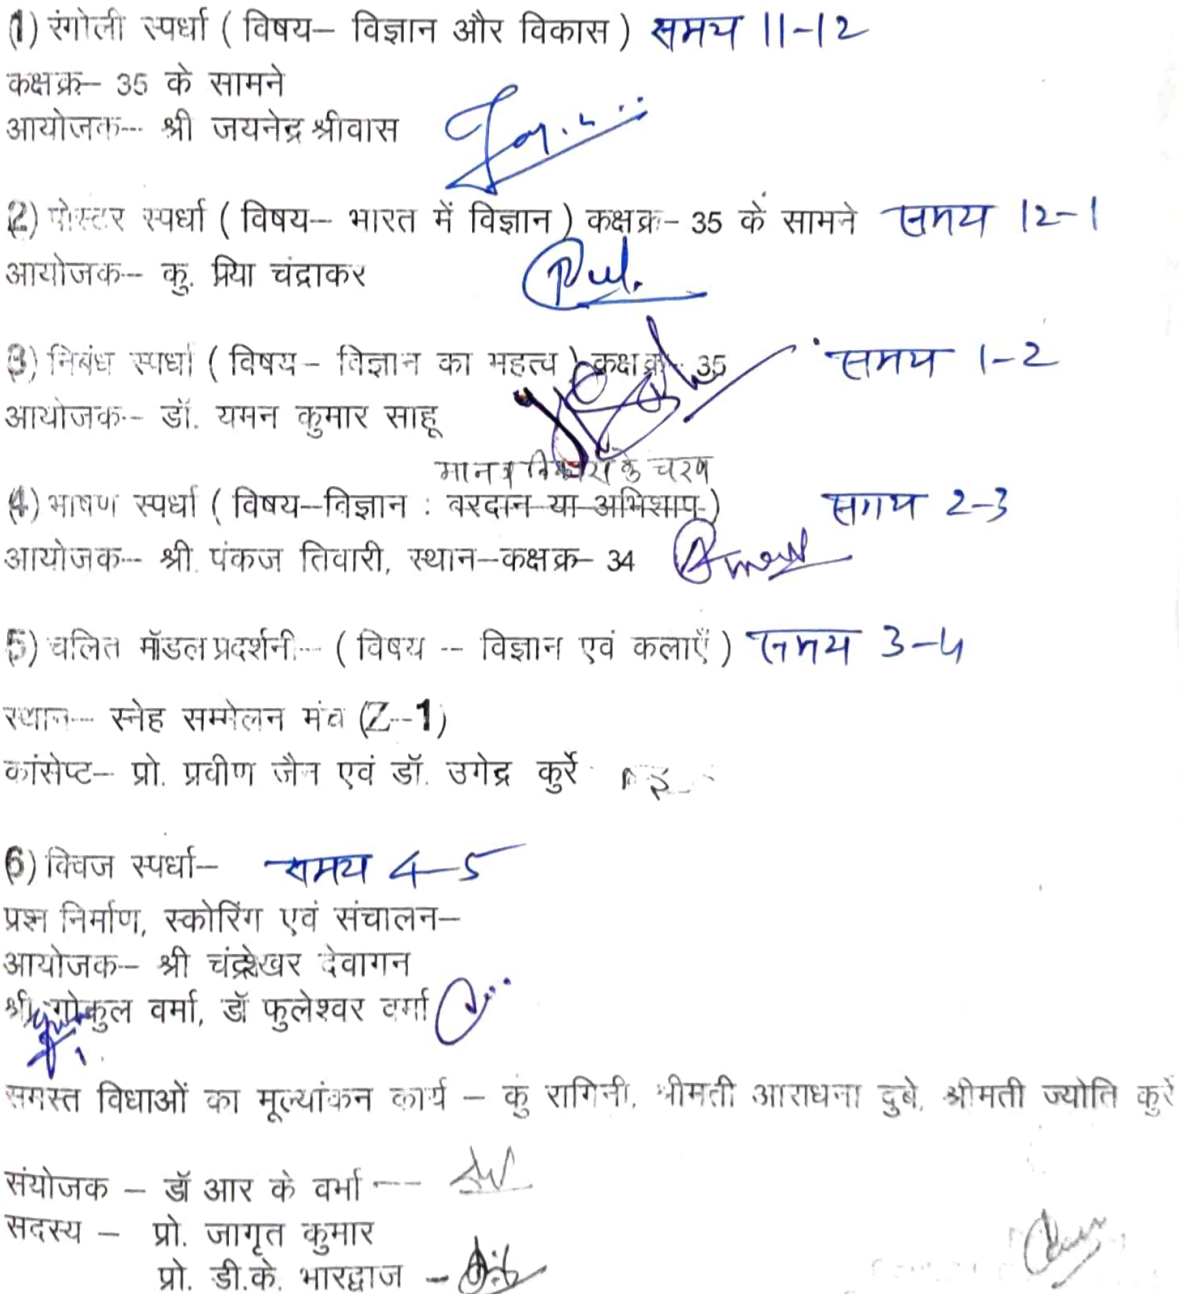 1) रंगोली स्पर्धा ( विषय– विज्ञान और विकास ) समय 11-12
कक्षक्र– 35 के सामने
आयोजक-- श्री जयनेद्र श्रीवास
2) पोस्टर स्पर्धा ( विषय– भारत में विज्ञान ) कक्षक्र– 35 के सामने समय 12-1
आयोजक-- कु. प्रिया चंद्राकर
3) निबंध स्पर्धा ( विषय – विज्ञान का महत्व ) कक्षक्र– 35 समय 1-2
आयोजक-- डॉ. यमन कुमार साहू
मानव विकास के चरण
4) भाषण स्पर्धा ( विषय–विज्ञान : वरदान या अभिशाप ) समय 2-3
आयोजक-- श्री पंकज तिवारी, स्थान–कक्षक्र– 34
5) चलित मॉडल प्रदर्शनी-- ( विषय -- विज्ञान एवं कलाएँ ) समय 3-4
स्थान-- स्नेह सम्मेलन मंच (Z--1)
कांसेप्ट– प्रो. प्रवीण जैन एवं डॉ. उगेद्र कुर्रे
6) क्विज स्पर्धा– समय 4-5
प्रश्न निर्माण, स्कोरिंग एवं संचालन–
आयोजक– श्री चंद्रशेखर देवागन
श्री गोकुल वर्मा, डॉ फुलेश्वर वर्मा
समस्त विधाओं का मूल्यांकन कार्य – कु रागिनी, श्रीमती आराधना दुबे, श्रीमती ज्योति कुर्रे
संयोजक – डॉ आर के वर्मा --
सदस्य – प्रो. जागृत कुमार
प्रो. डी.के. भारद्वाज –